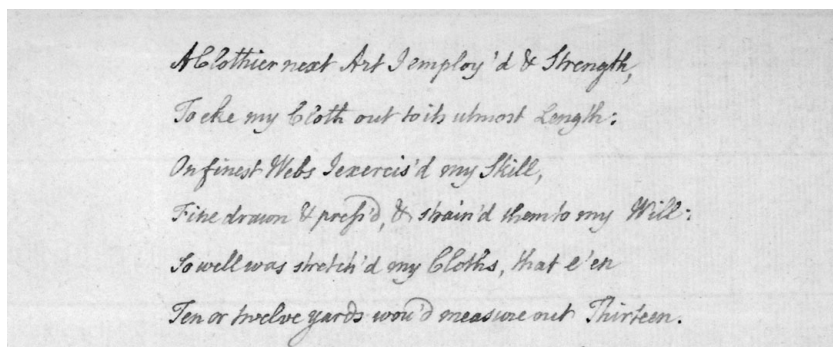 A Clothier next Art I employ'd & Strength,
To eke my Cloth out to its utmost Length:
On finest Webs I exercis'd my Skill,
Fine drawn & press'd, & strain'd them to my Will:
So well was stretch'd my Cloths, that e'en
Ten or twelve yards wou'd measure out Thirteen.